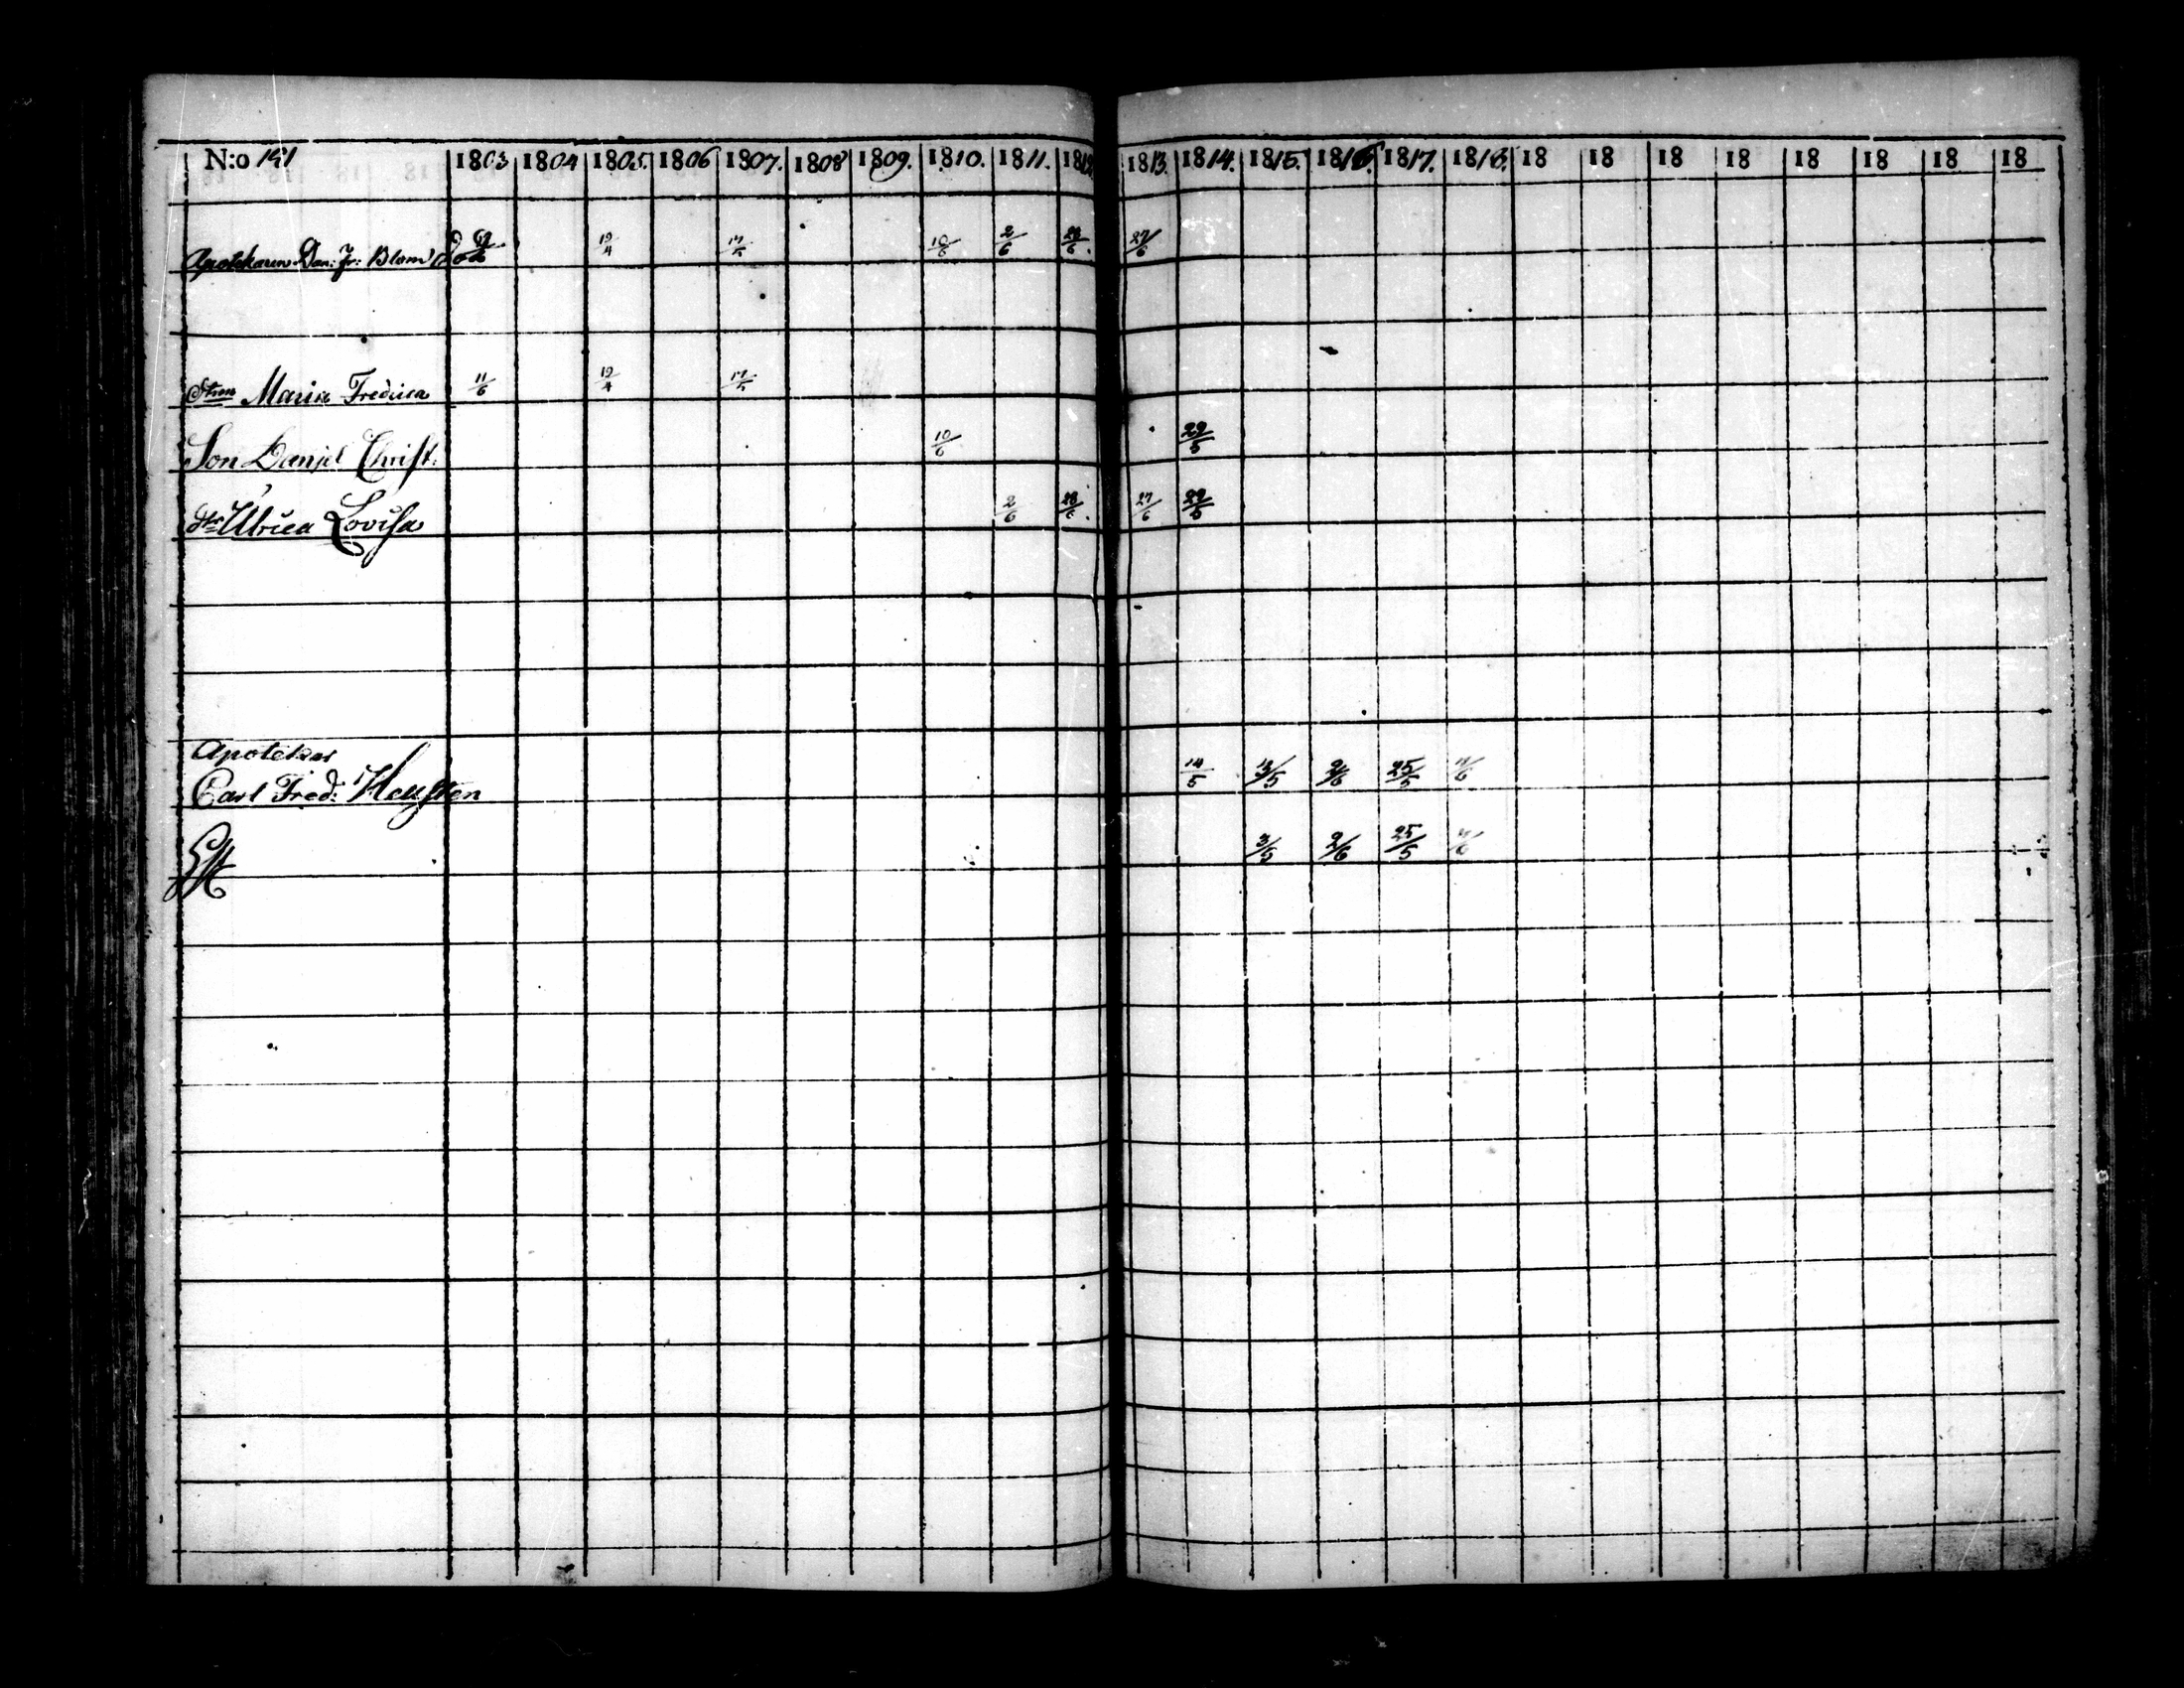 N:o 141 1803 1804 1805. 1806 1807. 1808 1809. 1810. 1811. 1812 1813. 1814. 1815. 1816. 1817. 1818. 18 18 18 18 18 18 18 18
Apotekaren Dan: Fr: Blom 12/4 17/5 10/6 2/6 28/6. 27/6
Maria Fredrica 11/6 12/4 17/5
Son Daniel Christ: 10/6 29/5
Dtr Ulrica Lovisa 2/6 28/6. 27/6 29/5
Apoteker
Carl Fred: 14/5 13/5 2/6 25/5
3/5 2/6 25/5